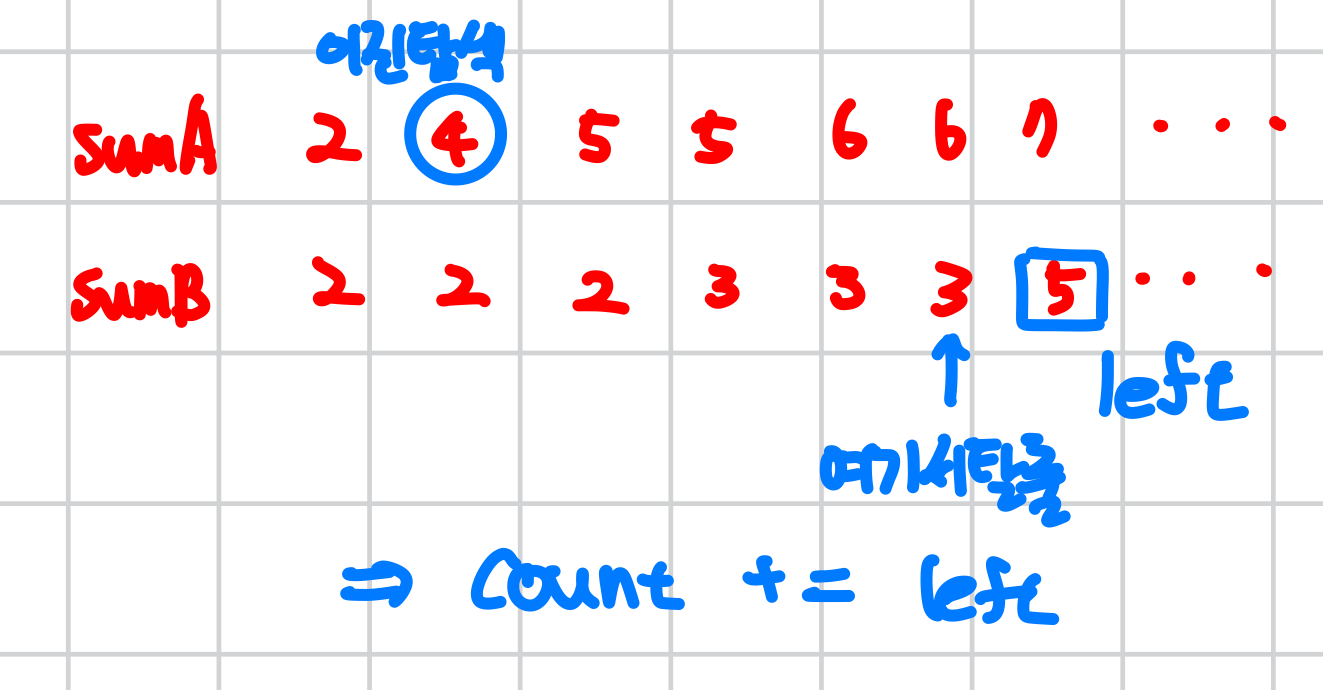 이진탐색
sumA 2 4 5 5 6 6 7 ...
sumB 2 2 2 3 3 3 5 ...
left
여기서탈출
⇒ Count += left